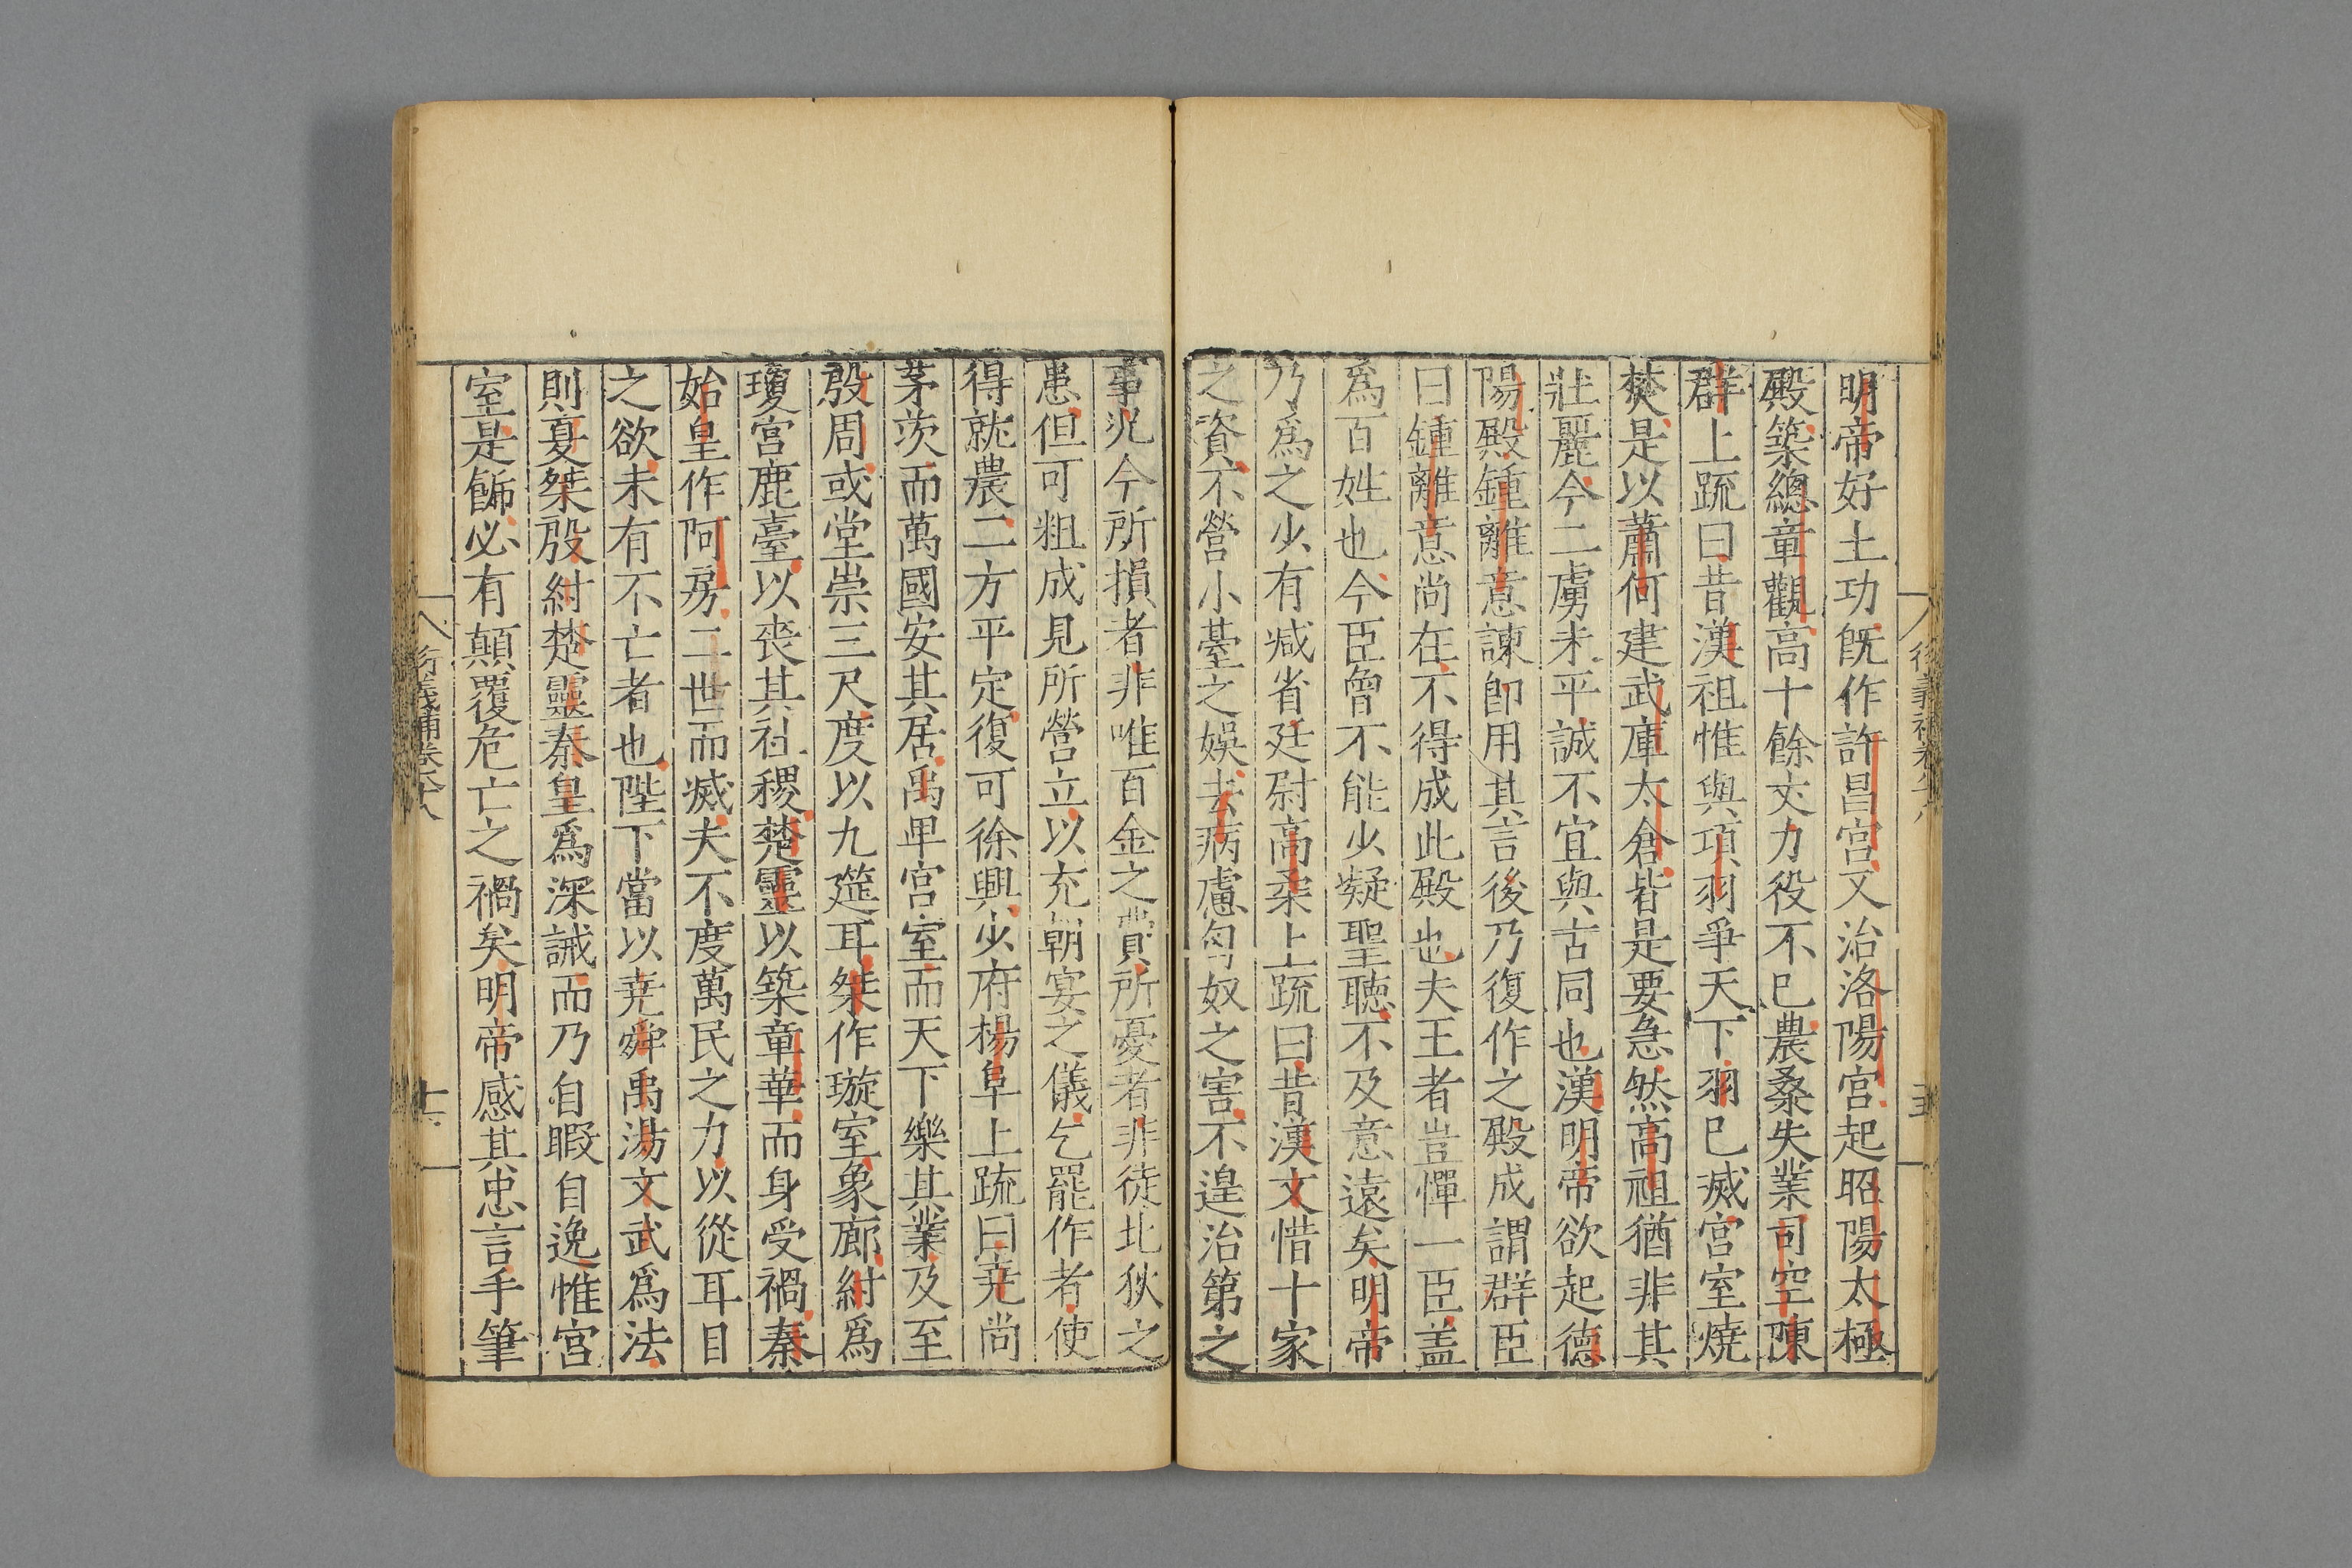 明帝好土功旣作許昌宮又治洛陽宮起昭陽太極
殿築總章觀高十餘丈力役不已農桑失業司空陳
群上疏曰昔漢祖惟與項羽爭天下羽已滅宮室燒
焚是以蕭何建武庫太倉皆是要急然高祖猶非其
壯麗今二虜未平誠不宜與古同也漢明帝欲起德
陽殿鍾離意諫卽用其言後乃復作之殿成謂群臣
曰鍾離意尚在不得成此殿也夫王者豈憚一臣盖
爲百姓也今臣曾不能少凝聖聽不及意遠矣明帝
乃爲之少有减省廷尉高柔上疏曰昔漢文惜十家
之資不營小䑓之娛去病慮匈奴之害不遑治第之
事况今所損者非唯百金之費所憂者非徒北狄之
患但可粗成見所營立以充朝宴之儀乞罷作者使
得就農二方平定復可徐興少府楊阜上疏曰堯尚
茅茨而萬國安其居禹卑宮室而天下樂其業及至
殷周或堂崇三尺度以九筵耳桀作璇室象廊紂爲
瓊宮鹿臺以喪其社稷楚靈以築章華而身受禍秦
始皇作阿房二世而滅夫不度萬民之力以從耳目
之欲未有不亡者也陛下當以堯舜禹湯文武爲法
則夏桀殷紂楚靈秦皇爲深誡而乃自暇自逸惟宮
室是餙必有顚覆危亡之禍矣明帝感其忠言手筆
衍義補卷八十八